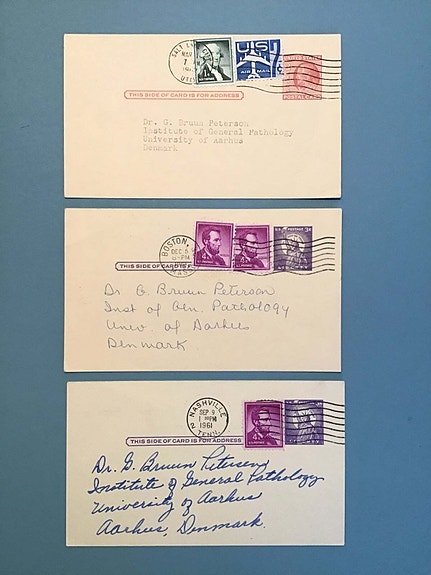 SALT LA
MAR
7
UTAH
US
AIR MAIL
POSTAL CARD
THIS SIDE OF CARD IS FOR ADDRESS
Dr. G. Bruun Peterson
Institute of General Pathology
University of Aarhus
Denmark
BOSTON,
DEC 5
MASS
4¢
4¢
U.S. POSTAGE 3¢
THIS SIDE OF CARD IS F
Dr G. Bruun Peterson
Inst of Gen. Pathology
Univ. of Aarhus
Denmark
NASHVILLE
SEP 9
1 PM
1961
2 TENN.
4¢
THIS SIDE OF CARD IS FOR ADDRESS
Dr. G. Bruun Petersen
Institute of General Pathology
University of Aarhus
Aarhus, Denmark.